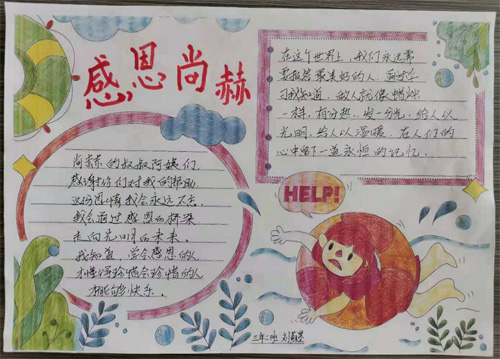 感恩尚赫
在这个世界上,我们永远需
要报答最美好的人,
我知道,做人就像蜡烛
一样,有一分热,发一分光,给人以
光明,给人以温暖,在人们的
心中留下一道永恒的记忆.
尚赫的叔叔阿姨们,
感谢你们对我的帮助
这份恩情我会永远不忘.
我会通过感恩的桥梁
走向光明的未来.
我知道,学会感恩的人
才懂得珍惜会珍惜的人
才能够快乐.
HELP!
三年二班 刘